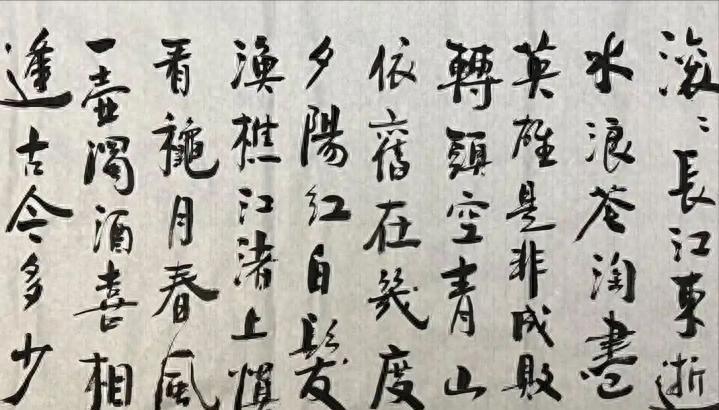 滚〻長江東逝
水浪花淘盡
英雄是非成敗
轉頭空青山
依舊在幾度
夕陽紅白髮
漁樵江渚上慣
看穐月春風
一壺濁酒喜相
逢古今多少